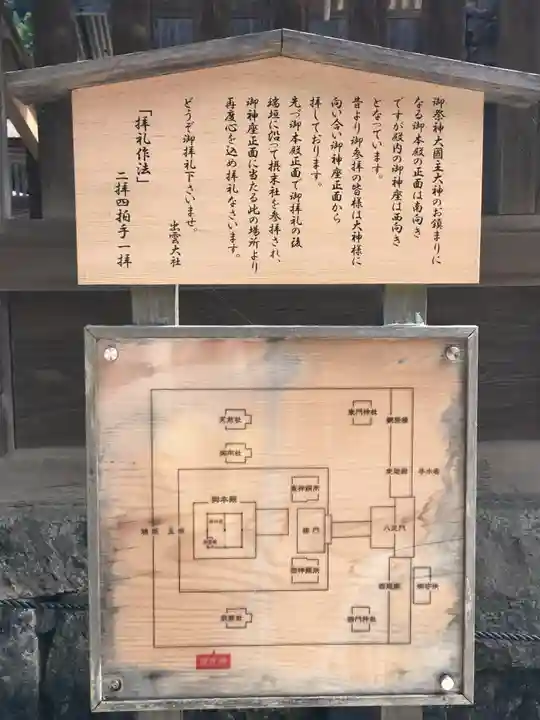 御祭神大國主大神のお鎮まりに
なる御本殿の正面は南向き
ですが殿内の御神座は西向き
となっています。
昔より御参拝の皆様は大神様に
向い合い御神座正面から
拝しております。
先づ御本殿正面で御拝礼の後
瑞垣に沿って摂末社を参拝され、
御神座正面に当たる此の場所より
再度心を込め拝礼なさいます。
どうぞ御拝礼下さいませ。
出雲大社
「拝礼作法」
二拝四拍手一拝
天前社
御向社
東門神社
観祭楼
東廻廊
手水舎
東神饌所
御本殿
楼門
八足門
西神饌所
西廻廊
御守所
筑紫社
西門神社